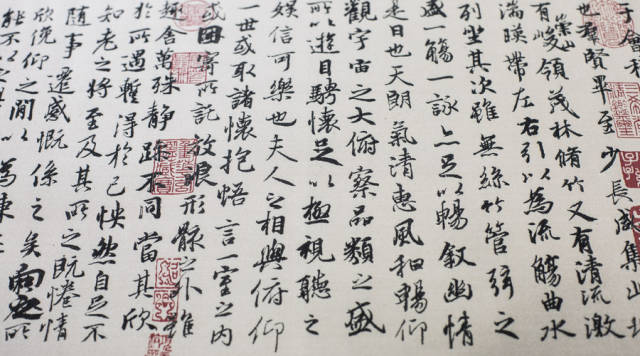 也羣賢畢至少長咸集此
崇山
有峻領茂林脩竹又有清流激
湍暎帶左右引以為流觴曲水
列坐其次雖無絲竹管弦之
盛一觴一詠亦足以暢敘幽情
是日也天朗氣清惠風和暢仰
觀宇宙之大俯察品類之盛
所以遊目騁懷足以極視聽之
娛信可樂也夫人之相與俯仰
一世或取諸懷抱悟言一室之內
或因寄所託放浪形骸之外雖
趣舍萬殊靜躁不同當其欣
於所遇蹔得於己怏然自足不
知老之將至及其所之既惓情
隨事遷感慨係之矣向之所
欣俛仰之閒以為陳
能不以之